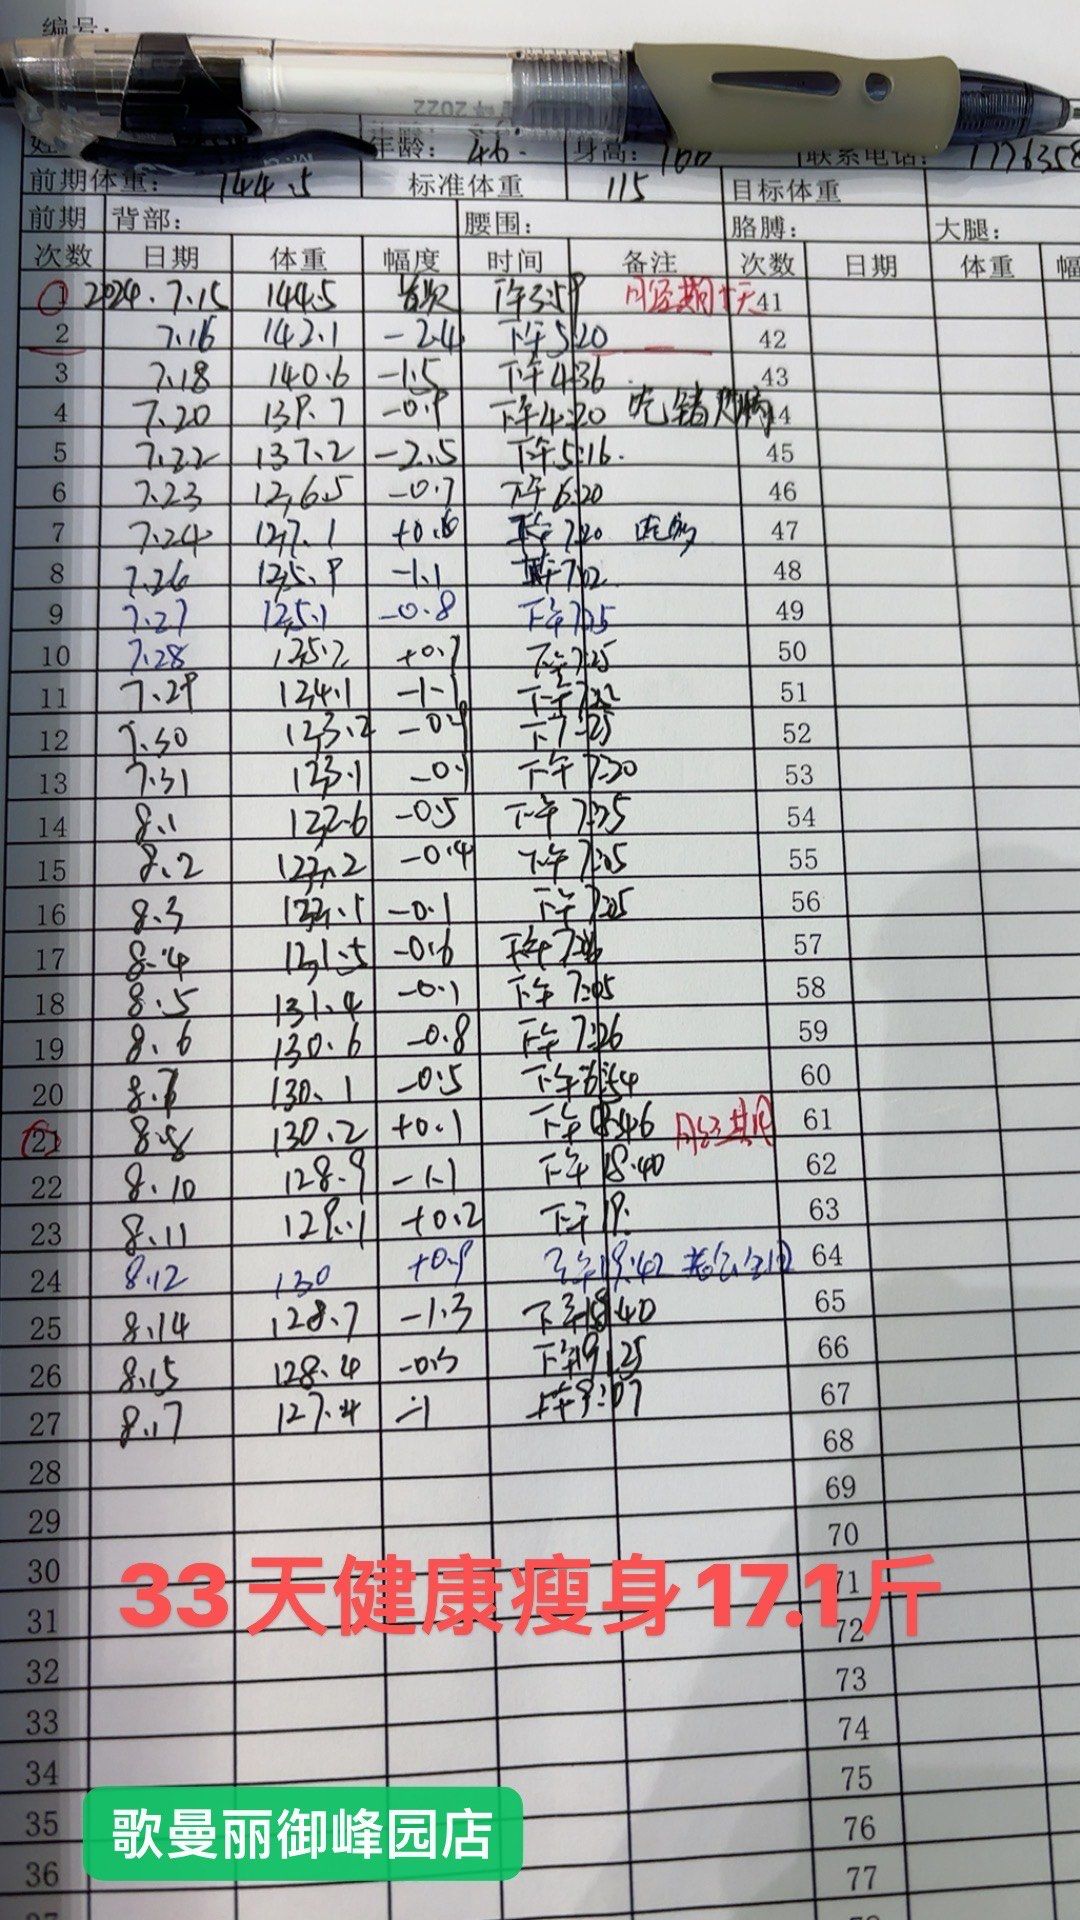 编号：
2022
年龄： 46. 身高： 166 联系电话： 1776358
前期体重： 144.5 标准体重 115 目标体重
前期 背部： 腰围： 胳膊： 大腿：
次数 日期 体重 幅度 时间 备注 次数 日期 体重 幅
1 2024.7.15 144.5 首次 下午3:59 月经期 天 41
2 7.16 142.1 -2.4 下午5:20 42
3 7.18 140.6 -1.5 下午4:36 43
4 7.20 139.7 -0.9 下午4:20 吃 44
5 7.22 137.2 -2.5 下午5:16. 45
6 7.23 6.5 -0.7 下午6:20 46
7 7.24 7.1 +0.6 下午7:20 吃 47
8 7.26 5.9 -1.1 下午7:02 48
9 7.27 5.1 -0.8 下午7:15 49
10 7.28 5.2 +0.7 下午7:25 50
11 7.29 4.1 -1.1 下午7:22 51
12 7.30 3.2 -0.9 下7:25 52
13 7.31 3.1 -0.1 下午7:20 53
14 8.1 2.6 -0.5 下午7:35 54
15 8.2 2.2 -0.4 下午7:05 55
16 8.3 2.1 -0.1 下午7:05 56
17 8.4 1.5 -0.6 下午7:06 57
18 8.5 131.4 -0.1 下午7:05 58
19 8.6 130.6 -0.8 下午7:26 59
20 8.7 130.1 -0.5 下午6:54 60
21 8.8 130.2 +0.1 下午18:46 月经期 61
22 8.10 128.9 -1.1 下午18.40 62
23 8.11 129.1 +0.2 下午19. 63
24 8.12 130 +0.9 下午19:42 64
25 8.14 128.7 -1.3 下午18:40 65
26 8.15 128.4 -0.3 下午19:25 66
27 8.17 127.4 -1 上午9:07 67
28 68
29 69
30 70
33天健康瘦身17.1斤
31 71
32 72
33 73
34 74
35 75
歌曼丽御峰园店
36 76
77